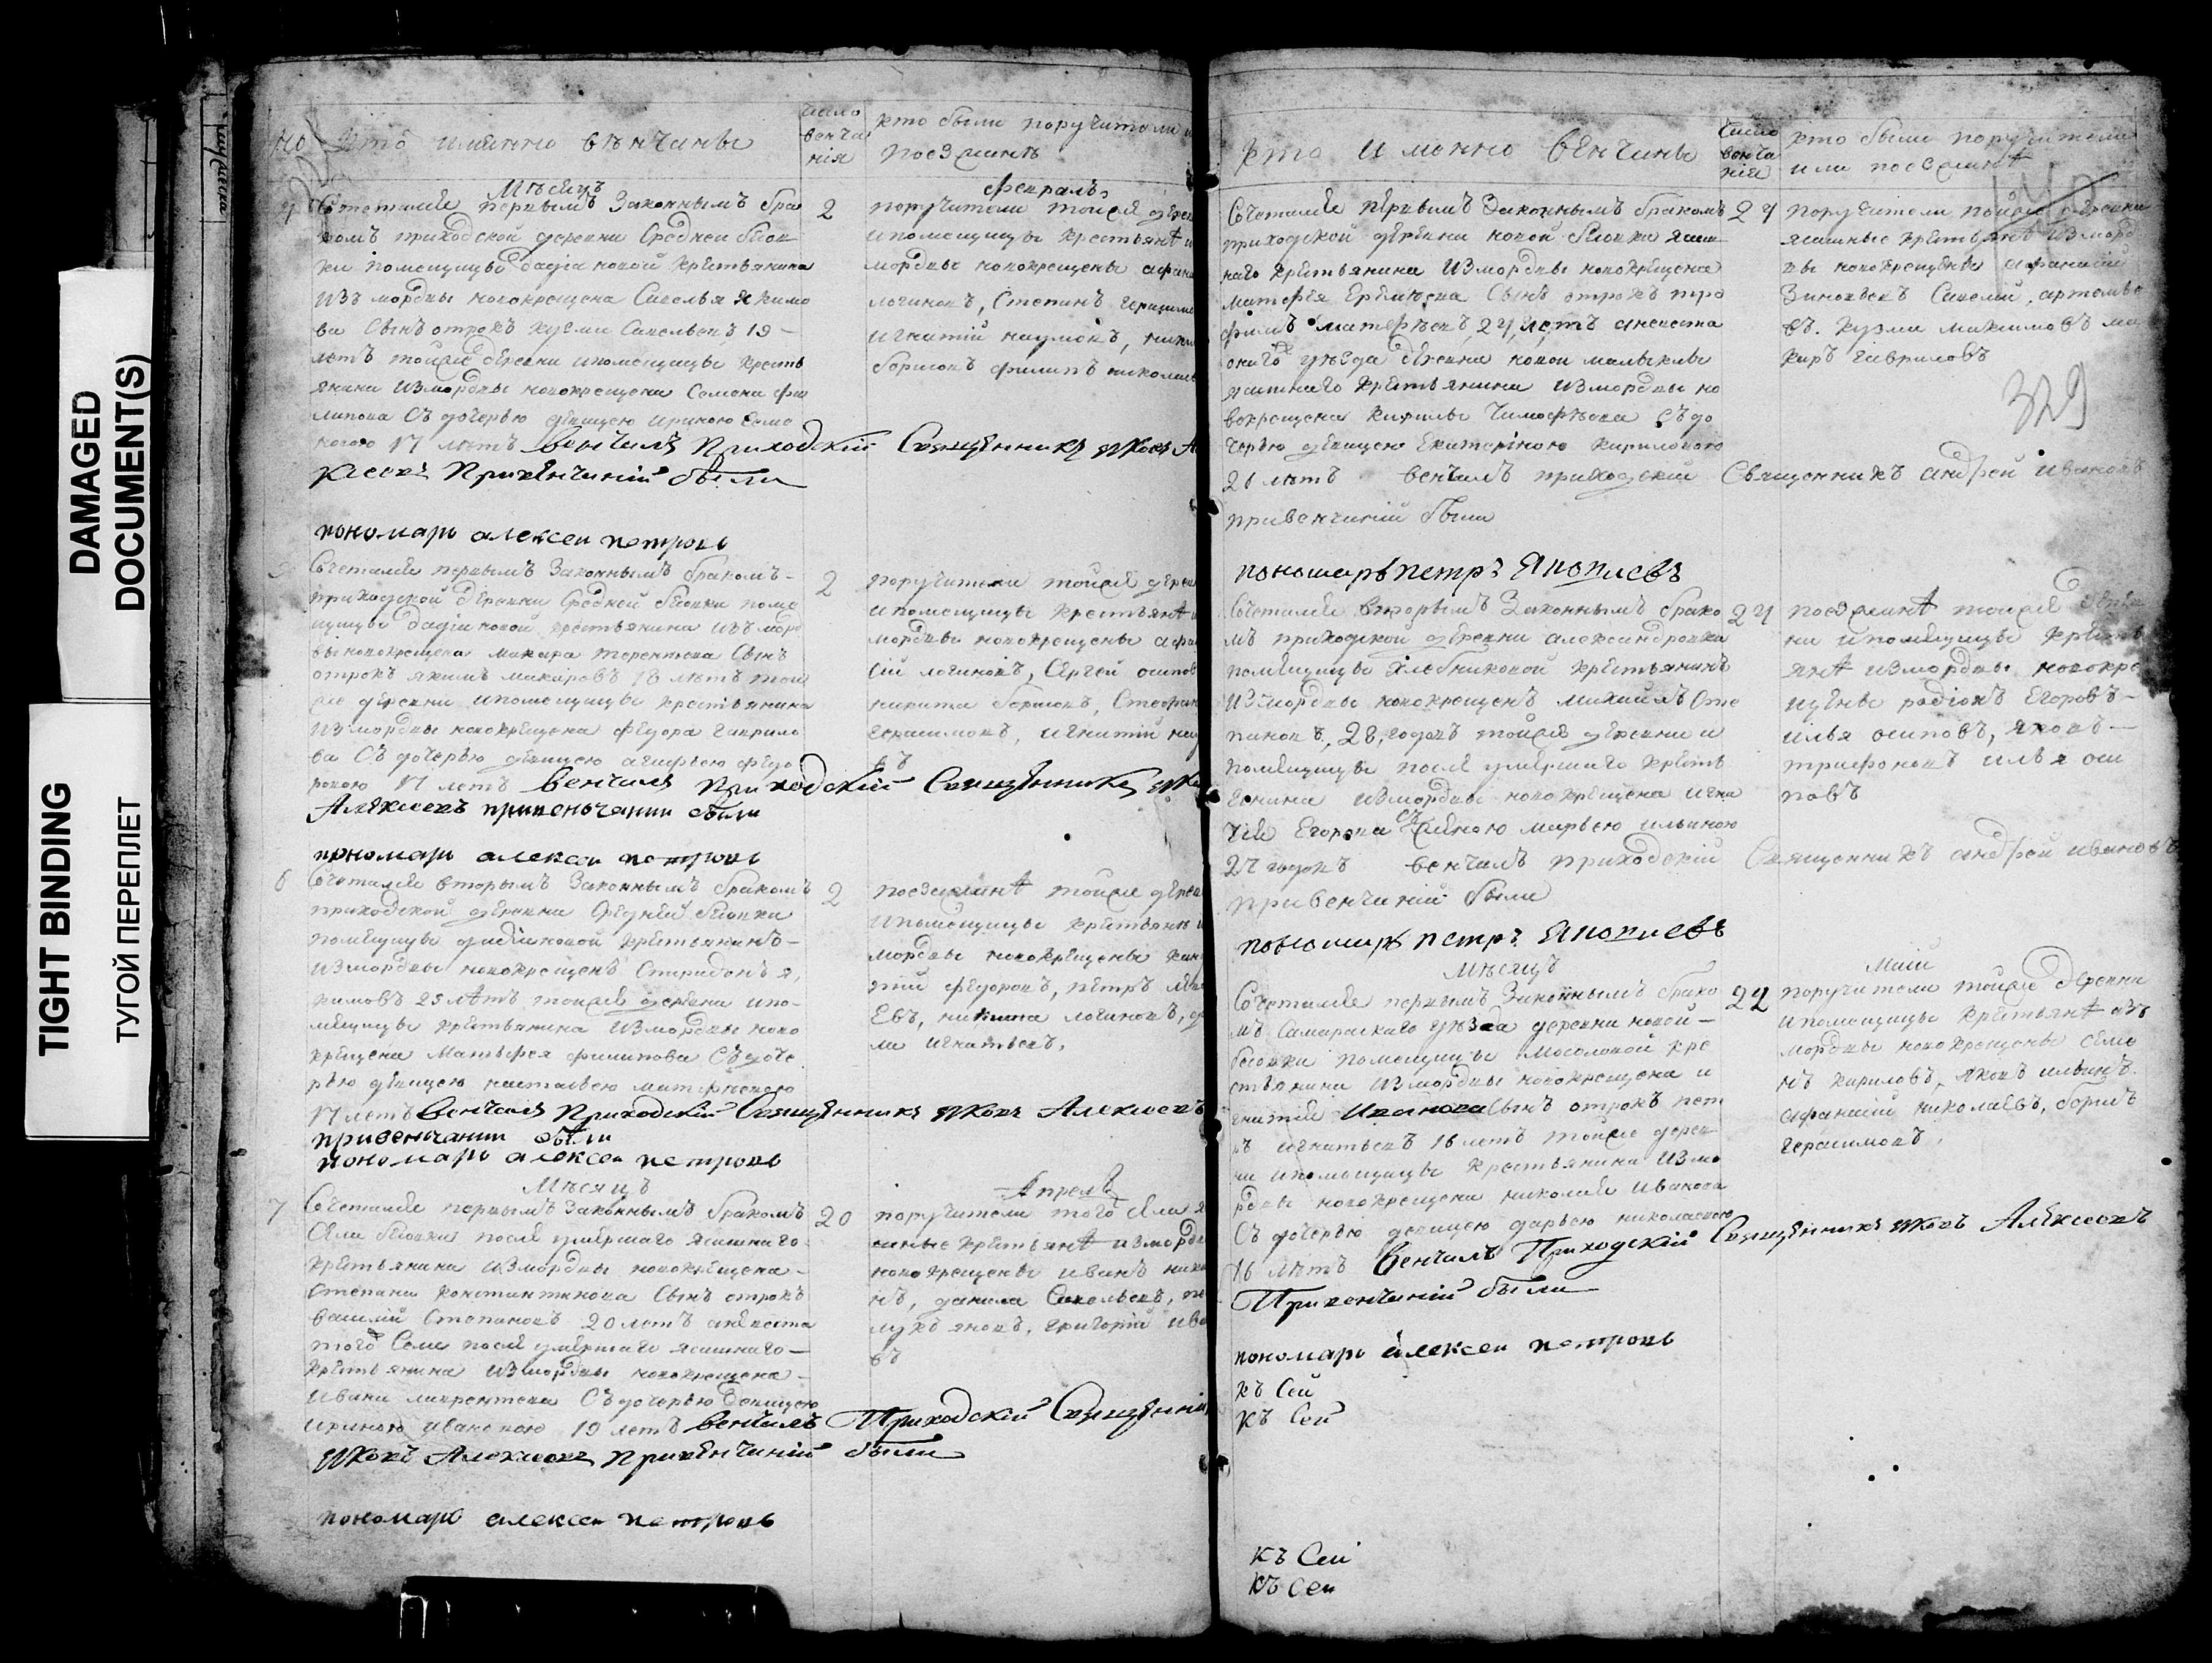 DAMAGED
DOCUMENT(S)
TIGHT BINDING
ТУГОЙ ПЕРЕПЛЕТ
но кто имянно венчаны
число
венча
ния
кто были поручители
поезжанѣ
Мѣсецъ
февраль
4 Сочетался первымъ Законнымъ бра
комъ приходской деревни Средней
ки помещицы крестьянина
изъ мордвы новокрещена Савелья Якимо
ва Сынъ отрокъ кузма Савельевъ 19
летъ тойже деревни ипомещицы кресть
янина измордвы новокрещена Семена фи
липова Съ дочерью девицею ириною Семе
новою 17 летъ венчалъ Приходский Священникъ Яковъ А
лексеевъ Привенчании были
2
поручители тойже дерев
ипомещицы крестьянѣ и
мордвы новокрещены афана
логиновъ, Степанъ герасимо
игнатий наумовъ, ники
борисовъ филипъ николаев
пономарь алексеи петровъ
Сочетался первымъ Законнымъ бракомъ
приходской деревни Средней поме
щицы крестьянина изъ морд
вы новокрещена макара терентьева Сынъ
отрокъ якимъ макаровъ 18 летъ той
же деревни ипомещицы крестьянина
измордвы новокрещена федора гаврило
ва Съ дочерью девицею федо
ровою 17 летъ венчалъ Приходский Священникъ Яко
Алексеевъ привеньчании были
2
поручители тойже дерев
ипомещицы крестьянѣ и
мордвы новокрещены афана
сий логиновъ, Сергей осипов
никита борисовъ, Стефан
герасимовъ, игнатий нау
въ
пономарь алексеи петровъ
6 Сочетался вторымъ Законнымъ бракомъ
приходской деревни Средней
помещицы крестьянинъ
измордвы новокрещенъ Спиридонъ я
кимовъ 25 летъ тойже деревни ипо
мещицы крестьянина измордвы ново
крещена Матвфея филипова Съдоче
рью девицею настасьею матфеевою
17 летъ венчалъ Приходский Священникъ Яковъ Алексеевъ
привенчании были
2
поезжанѣ тойже дерев
ипомещицы крестьянѣ и
мордвы новокрещены
тий федоровъ, петръ
евъ, никита логиновъ,
ма игнатьевъ,
пономарь алексеи петровъ
Мѣсяцъ
Апрель
7 Сочетался первымъ Законнымъ бракомъ
Села после умершаго ясашнаго
крестьянина измордвы новокрещена
Степана константинова Сынъ отрокъ
василий Степановъ 20 летъ аневеста
того Села после умершаго ясашнаго
крестьянина измордвы новокрещена
ивана лаврентева Съдочерью девицею
ириною ивановою 19 летъ венчалъ Приходский Священни
Яковъ Алексеевъ Привенчании были
20
поручители того Села я
сашные крестьянѣ измордв
новокрещены иванъ ники
нъ, данила Савельевъ,
яковъ, григорий ива
въ
пономарь алексеи петровъ
кто именно венчаны
число
венча
нии
кто были поручители
или поезжанѣ
329
Сочетался первымъ Законнымъ бракомъ
приходской деревни новой ясаш
наго крестьянина измордвы новокрещена
матфея Еремеева Сынъ отрокъ тро
фимъ матфеевъ 24 летъ аневеста
онагожъ уезда деревни новой малыклы
ясашнаго крестьянина измордвы но
вокрещена кирилы тимофеева Съдо
черью девицею Екатериною кириловою
21 летъ венчалъ приходский Священникъ андрей ивановъ
привенчании были
24
поручители тойже деревни
ясашные крестьянѣ измор
вы новокрещены афанасий
Зиновьевъ Савелий артемье
въ. кузма максимовъ ма
каръ гавриловъ
пономарь петръ Япопиевъ
Сочетался вторымъ Законнымъ брако
мъ приходской деревни александровки
помещицы хлебниковой крестьянинъ
измордвы новокрещенъ михайлъ Сте
пановъ, 28, годовъ тойже деревни и
помещицы после умершаго кресть
янина измордвы новокрещена игна
тия Егорова съ женою марьею ильиною
27 годовъ венчалъ приходский Священникъ андрей ивановъ
привенчании были
24
поезжанѣ тойже дерев
ни ипомещицы кресть
янѣ измордвы новокре
щены родионъ Егоровъ
илья осиповъ, яковъ
трифоновъ илья оси
повъ
пономарь петръ Япопиевъ
Мѣсяцъ
Маий
Сочетался первымъ Законнымъ брако
мъ Самарскаго уезда деревни новой
бесовки помещицы мосоловой кре
стьянина измордвы новокрещена и
гнатия Иванова Сынъ отрокъ пет
ръ игнатьевъ 16 летъ тойже дерев
ни ипомещицы крестьянина измо
рдвы новокрещена николая иванова
Съ дочерью девицею дарьею николаевою
16 летъ Венчалъ Приходский Священникъ Яковъ Алексеевъ
Привенчании были
22
поручители тойже деревни
ипомещицы крестьянѣ изъ
мордвы новокрещены Семе
нъ кириловъ, яковъ ильинъ
афанасий николаевъ, борисъ
герасимовъ,
пономарь алексеи петровъ
къ Сей
къ Сей
къ Сеи
къ Сеи